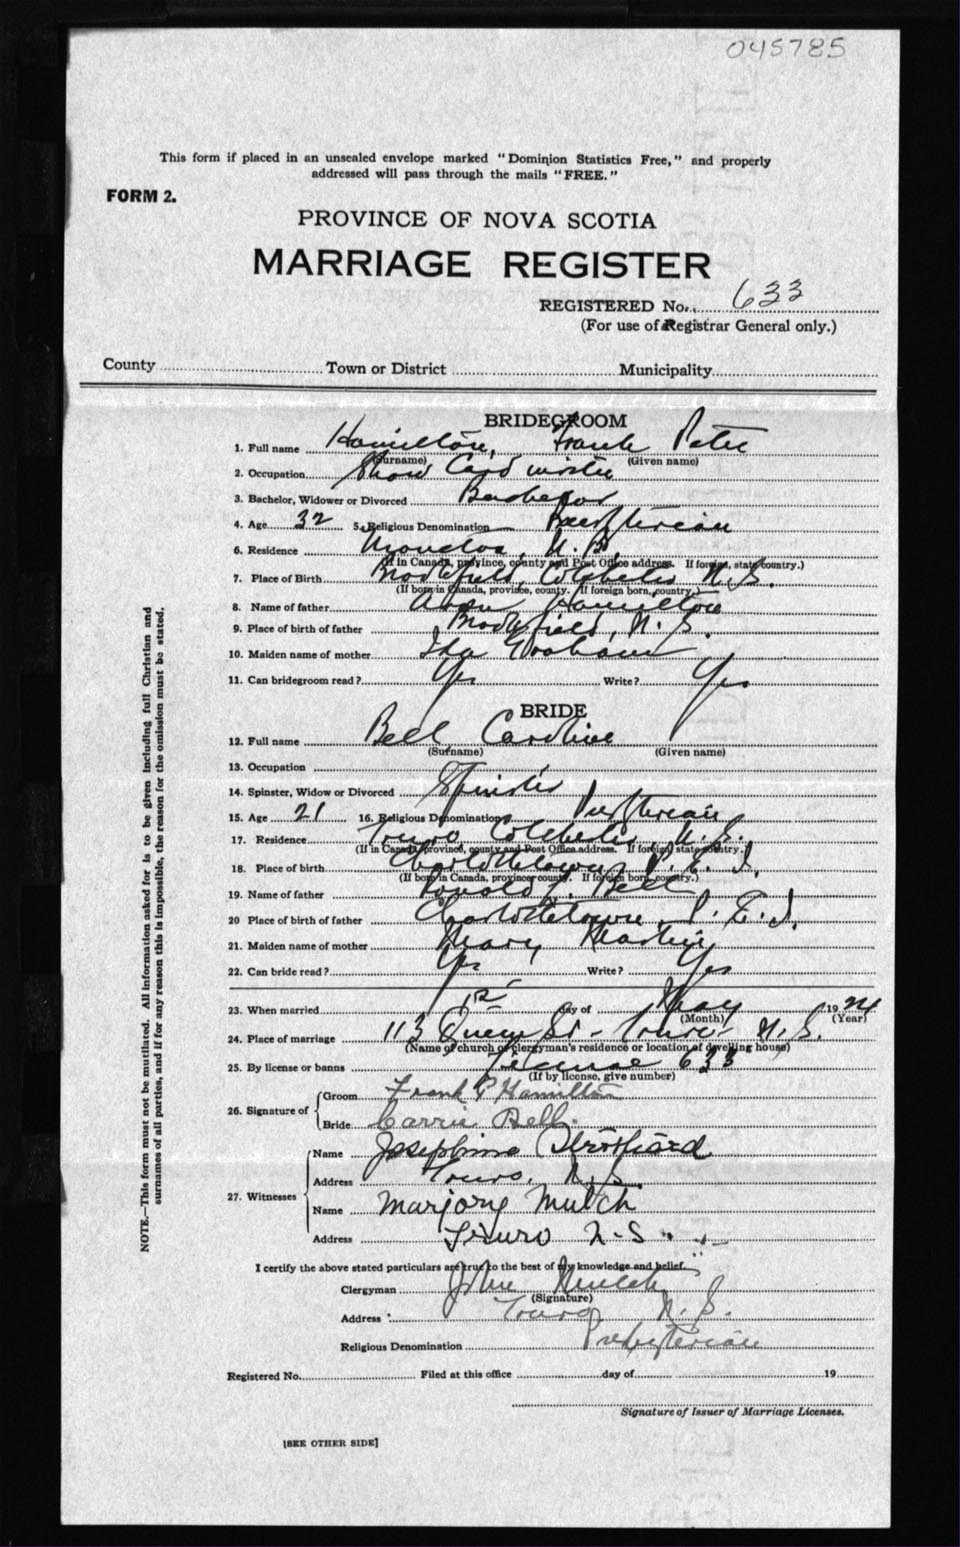 045785
This form if placed in an unsealed envelope marked "Dominion Statistics Free," and properly
addressed will pass through the mails "FREE."
FORM 2.
PROVINCE OF NOVA SCOTIA
MARRIAGE REGISTER
REGISTERED No. 633
(For use of Registrar General only.)
County Town or District Municipality
BRIDEGROOM
1. Full name Hamilton, Frank Peter
(Surname) (Given name)
2. Occupation Show Card writer
3. Bachelor, Widower or Divorced Bachelor
4. Age 32 5. Religious Denomination Presbyterian
6. Residence Moncton, N.B.
(If in Canada, province, county and Post Office address. If foreign, state country.)
7. Place of Birth Brookfield, Colchester N.S.
(If born in Canada, province, county. If foreign born, country.)
8. Name of father Hamilton
9. Place of birth of father Brookfield, N.S.
10. Maiden name of mother Ida Graham
11. Can bridegroom read? Yes Write? Yes
BRIDE
12. Full name Bell Caroline
(Surname) (Given name)
13. Occupation
14. Spinster, Widow or Divorced Spinster
15. Age 21 16. Religious Denomination Presbyterian
17. Residence Truro Colchester N.S.
(If in Canada, province, county and Post Office address. If foreign, state country.)
18. Place of birth Charlottetown P.E.I.
(If born in Canada, province, county. If foreign born, country.)
19. Name of father Ronald J. Bell
20 Place of birth of father Charlottetown P.E.I.
21. Maiden name of mother Mary
22. Can bride read? Yes Write? Yes
23. When married 1st day of May 1924
(Month) (Year)
24. Place of marriage 113 Queen St - Truro - N.S.
(Name of church or clergyman's residence or location of dwelling house)
25. By license or banns License 633
(If by license, give number)
26. Signature of Groom Frank P Hamilton
Bride Carrie Bell
27. Witnesses Name Josephine
Address Truro, N.S.
Name Marjory Mutch
Address Truro N-S.
I certify the above stated particulars are true to the best of my knowledge and belief.
Clergyman John Mutch
(Signature)
Address Truro N.S.
Religious Denomination Presbyterian
Registered No. Filed at this office day of 19
Signature of Issuer of Marriage Licenses.
[SEE OTHER SIDE]
NOTE.—This form must not be mutilated. All information asked for is to be given including full Christian and
surnames of all parties, and if for any reason this is impossible, the reason for the omission must be stated.